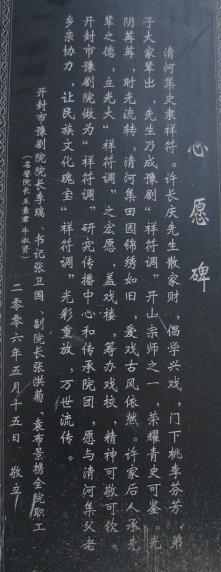 心愿碑
清河集史隶祥符。许长庆先生散家财，倡学兴戏，门下桃李芬芳，弟
子大家辈出，先生乃成豫剧“祥符调”开山宗师之一，荣耀青史可鉴。光
阴苒苒，时光流转，清河集田园锦绣如旧，爱戏古风依然。许家后人承先
辈之德，立光大“祥符调”之宏愿，盖戏楼，筹办戏校，精神可敬可钦。
开封市豫剧院做为“祥符调”研究传播中心和传承院团，愿与清河集父老
乡亲协力，让民族文化瑰宝“祥符调”光彩重放，万世流传。
开封市豫剧院院长李瑞、书记张卫国、副院长张洪菊、袁布景携全院职工
（名誉院长王素君牛淑贤）
二零零六年五月十五日 敬立